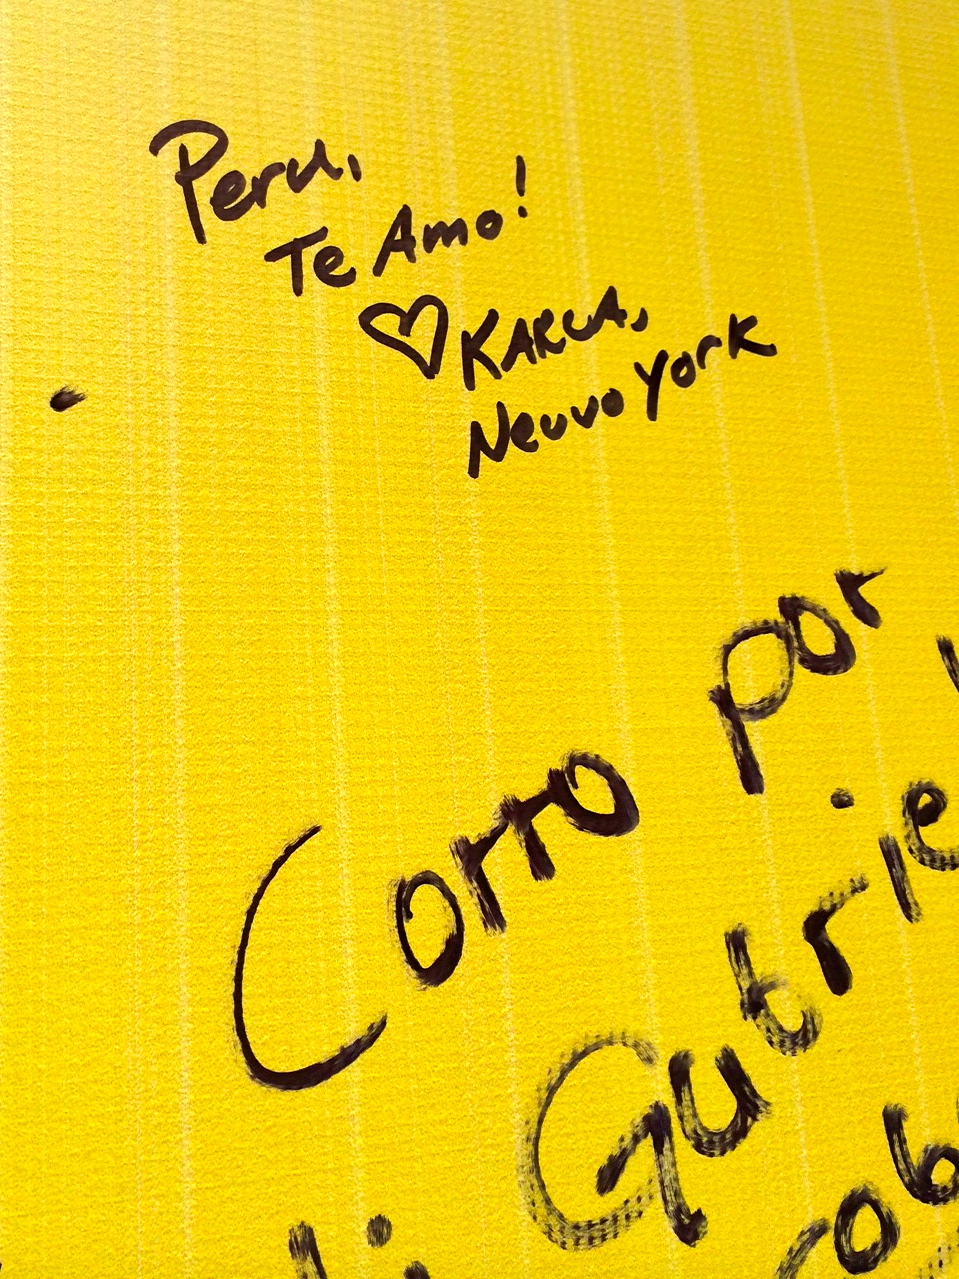 Peru,
Te Amo!
♡ KARLA,
Neuvo York
Corro por
Gutrie